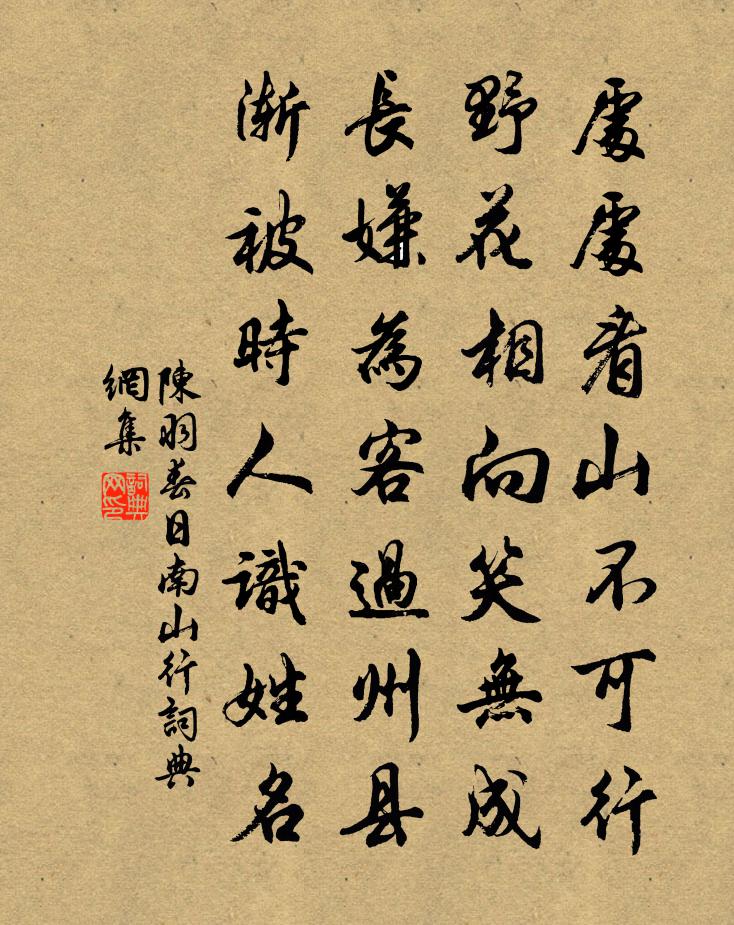 處處看山不可行
野花相向笑無成
長嫌為客過州县
漸被時人識姓名
陳羽春日南山行詞典
網集
詞典
网印